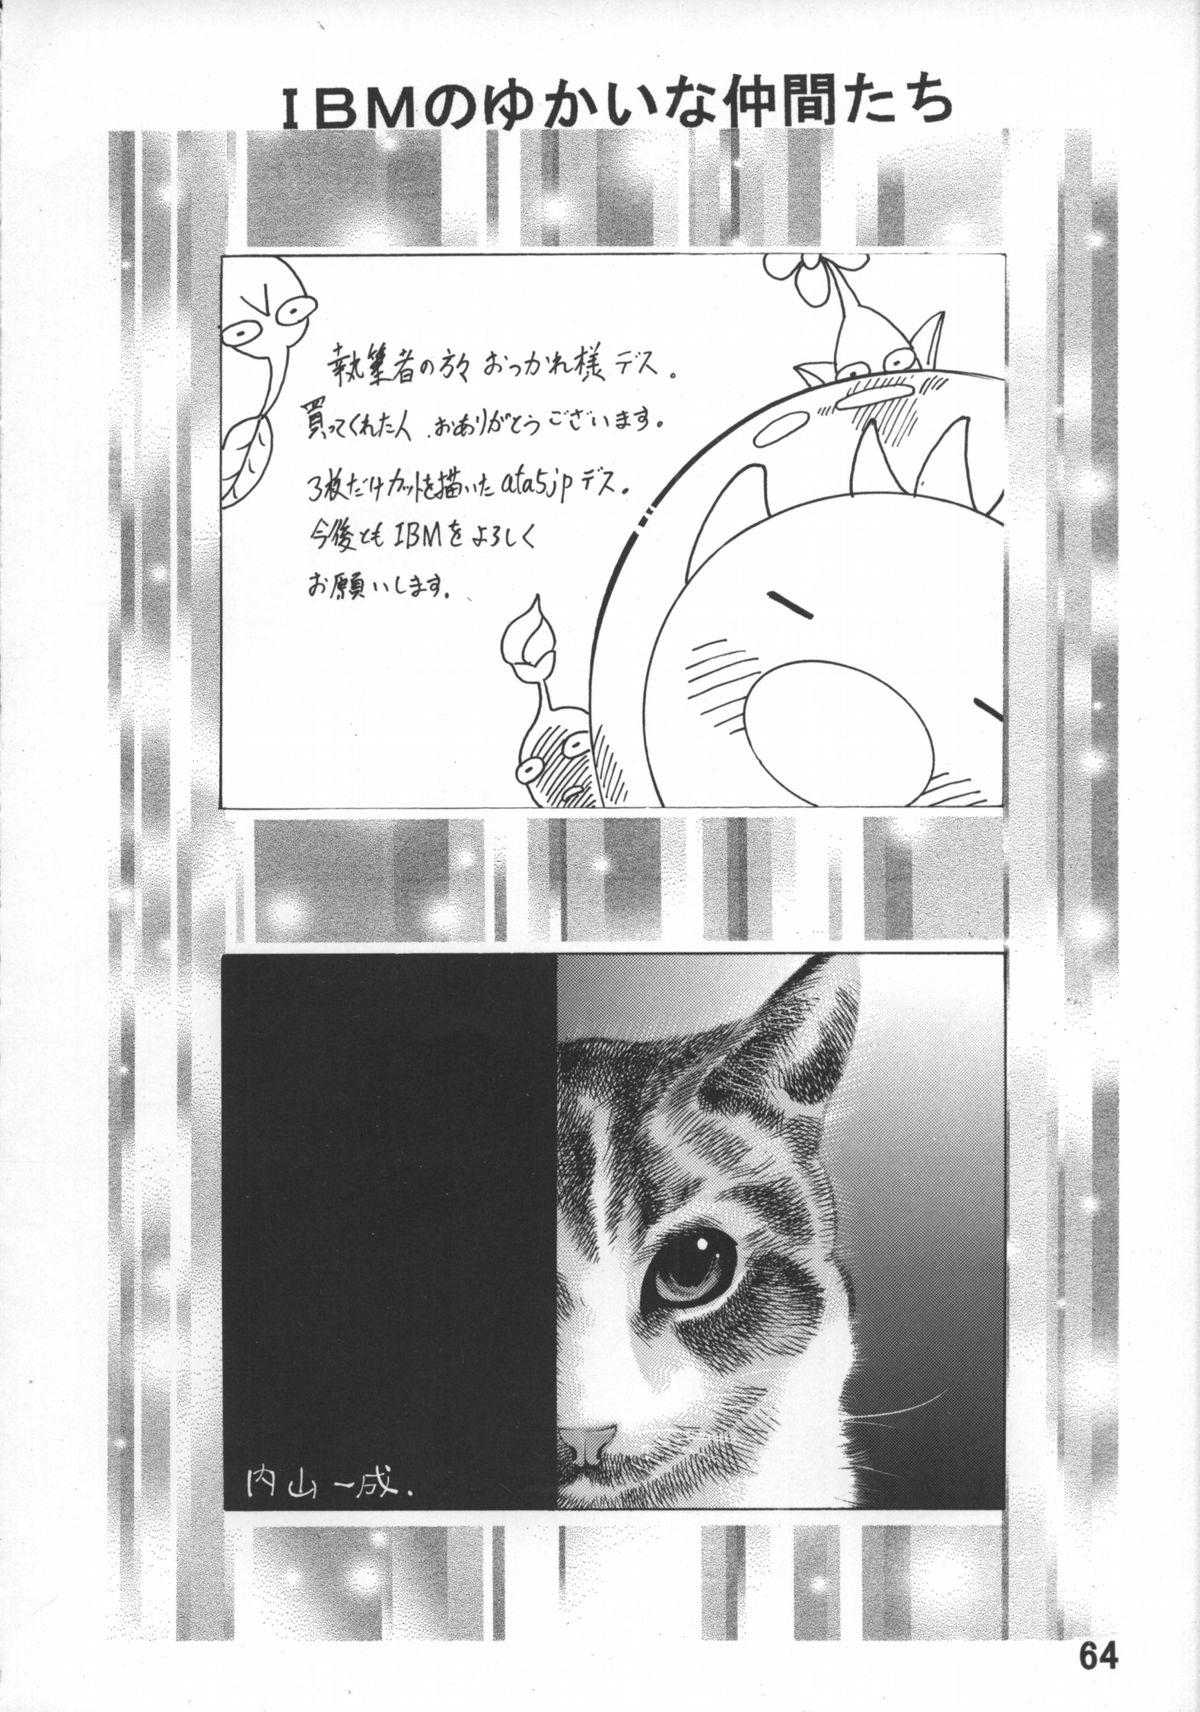 IBMのゆかいな仲間たち
執筆者の方々 おつかれ様デス。
買ってくれた人、おありがとうございます。
3枚だけカットを描いたata5jpデス。
今後ともIBMをよろしく
お願いします。
内山一成.
64